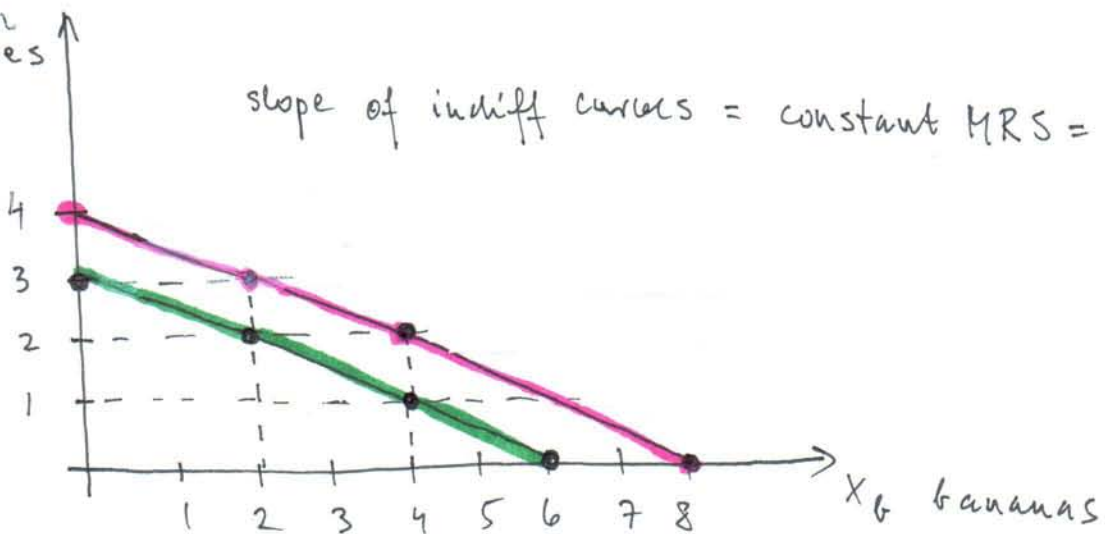 es
slope of indiff curves = constant MRS =
4
3
2
1
1 2 3 4 5 6 7 8
X_b bananas